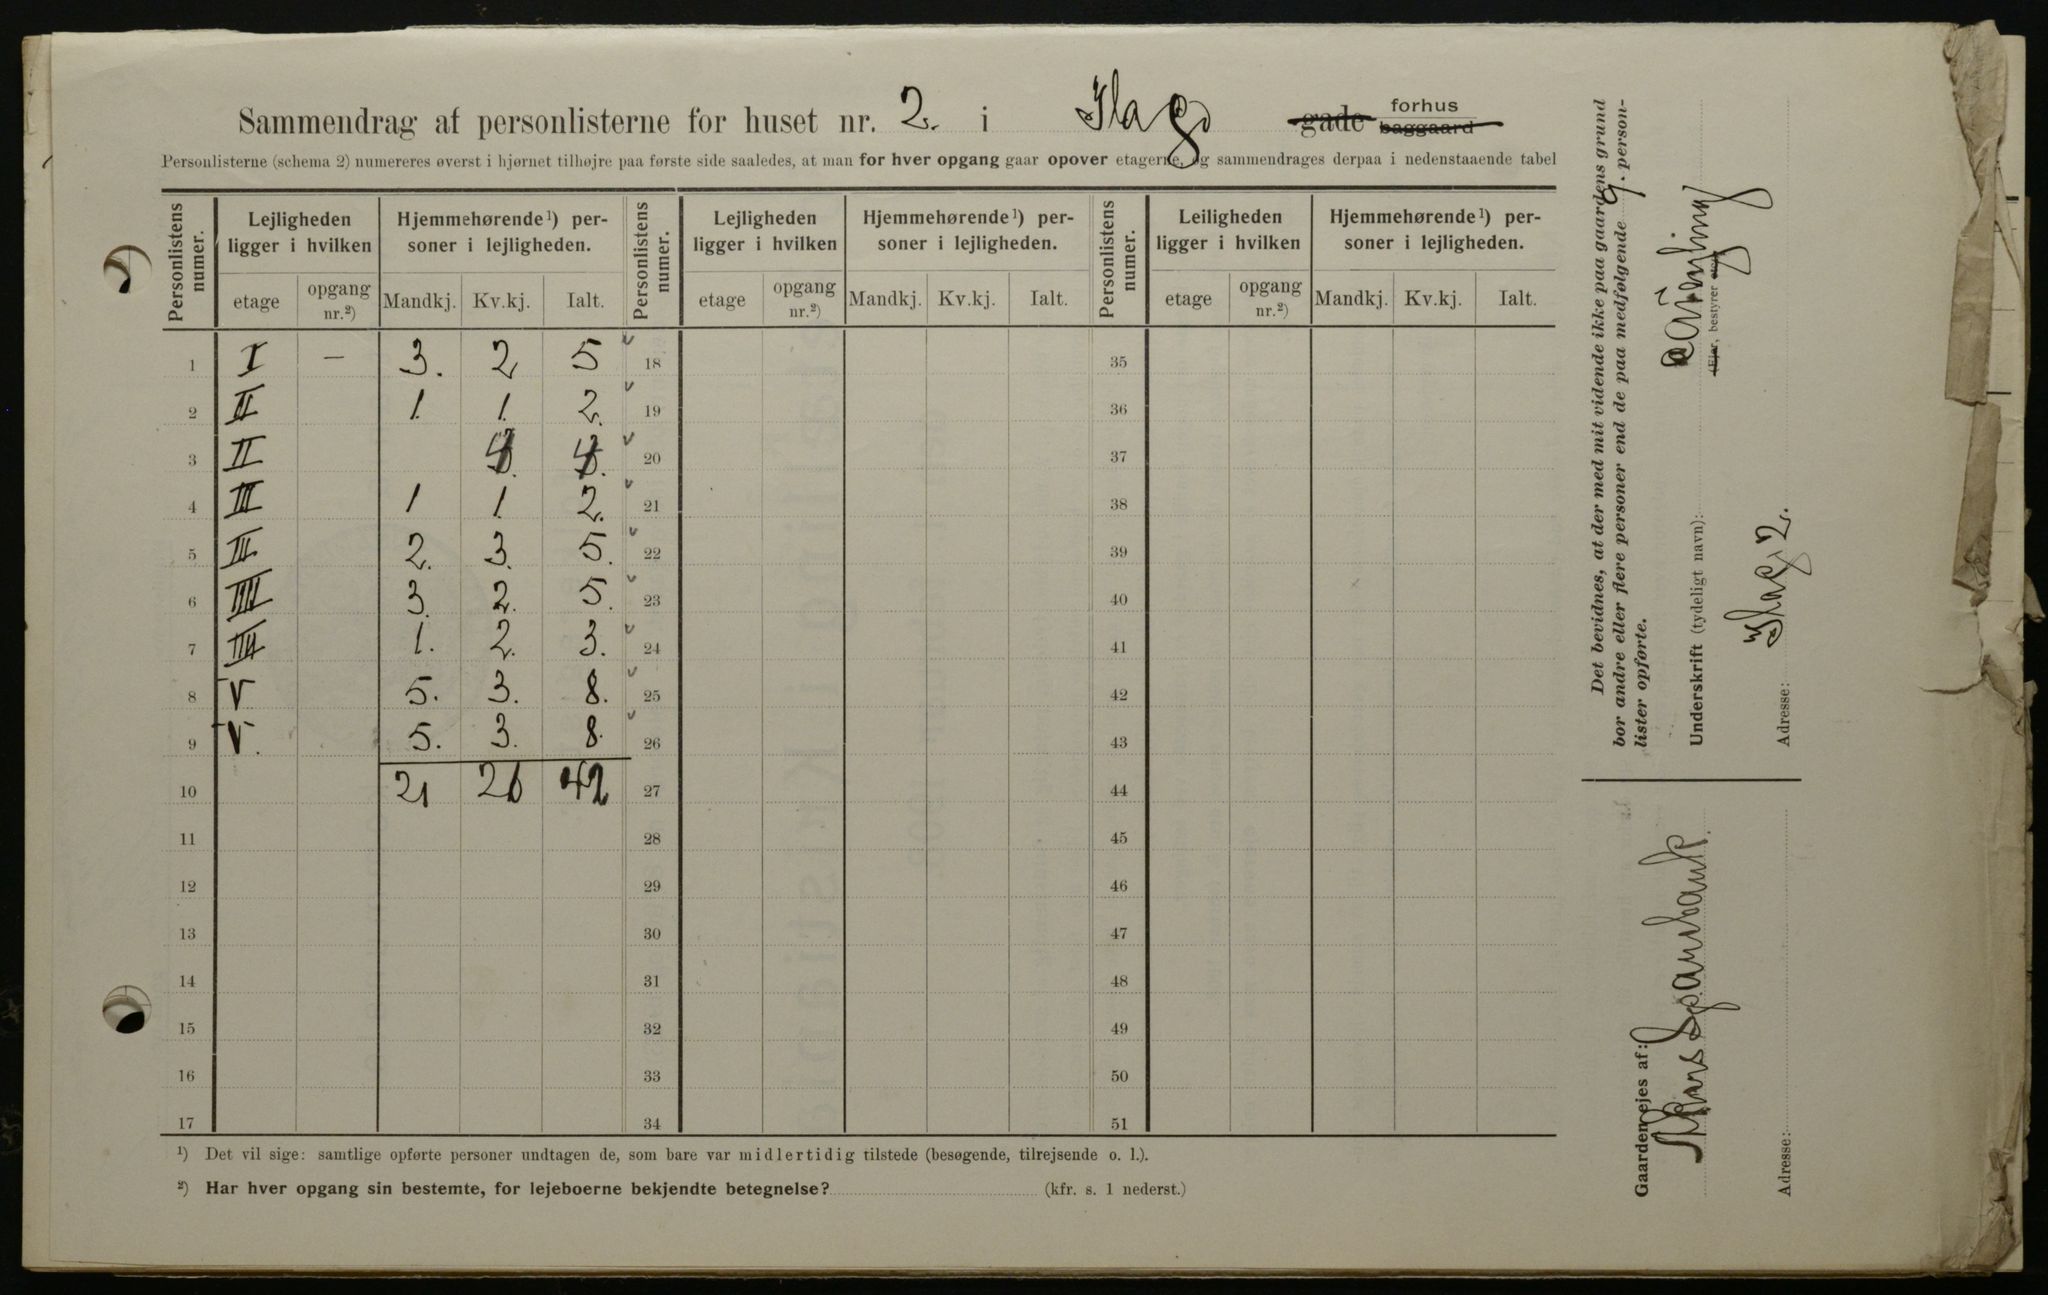 Sammendrag af personlisterne for huset nr. 2. i gade forhus baggaard
Personlisterne (schema 2) numereres øverst i hjørnet tilhøjre paa første side saaledes, at man for hver opgang gaar opover etagerne, og sammendrages derpaa i nedenstaaende tabel
Personlistens numer. Lejligheden ligger i hvilken Hjemmehørende¹) personer i lejligheden. Personlistens numer. Lejligheden ligger i hvilken Hjemmehørende¹) personer i lejligheden. Personlistens numer. Leiligheden ligger i hvilken Hjemmehørende¹) personer i lejligheden.
etage opgang nr.²) Mandkj. Kv.kj. Ialt. etage opgang nr.²) Mandkj. Kv.kj. Ialt. etage opgang nr.²) Mandkj. Kv.kj. Ialt.
1 I — 3. 2 5 18 35
2 II 1. 1. 2. 19 36
3 II 4. 4. 20 37
4 III 1 1. 2. 21 38
5 III 2. 3. 5. 22 39
6 IIII 3. 2. 5. 23 40
7 IIII 1. 2. 3. 24 41
8 V 5. 3. 8. 25 42
9 V. 5. 3. 8. 26 43
10 21 21 42 27 44
11 28 45
12 29 46
13 30 47
14 31 48
15 32 49
16 33 50
17 34 51
¹) Det vil sige: samtlige opførte personer undtagen de, som bare var midlertidig tilstede (besøgende, tilrejsende o. l.).
²) Har hver opgang sin bestemte, for lejeboerne bekjendte betegnelse? (kfr. s. 1 nederst.)
Det bevidnes, at der med mit vidende ikke paa gaardens grund
bor andre eller flere personer end de paa medfølgende 9. person-
lister opførte.
Underskrift (tydeligt navn):
(Ejer, bestyrer etc.)
Adresse: 2.
Gaarden ejes af: Sparebank.
Adresse: